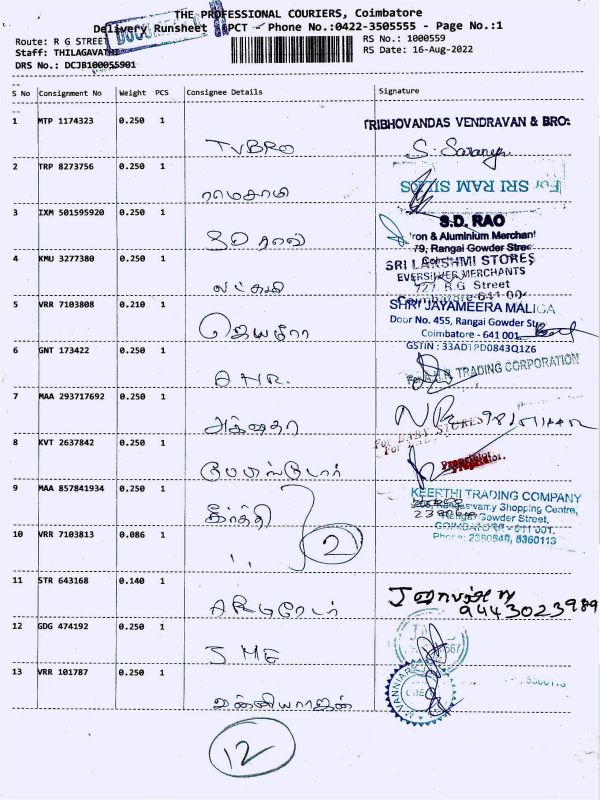 THE PROFESSIONAL COURIERS, Coimbatore
Delivery Runsheet PCT - Phone No.:0422-3505555 - Page No.:1
Route: R G STREET
RS No.: 1000559
Staff: THILAGAVATHI
RS Date: 16-Aug-2022
DRS No.: DCJB100055901
S No Consignment No Weight PCS Consignee Details Signature
1 MTP 1174323 0.250 1
TRIBHOVANDAS VENDRAVAN & BRO:
TVBRO S. Saranya
2 TRP 8273756 0.250 1
For SRI RAM SILKS
ராமசாமி
3 IXM 501595920 0.250 1
S.D. RAO
Iron & Aluminium Merchant
79, Rangai Gowder Street
SD ராவ்
4 KMU 3277380 0.250 1
SRI LAKSHMI STORES
EVERSILVER MERCHANTS
727 R.G Street
Coimbatore-641 00
லட்சுமி
5 VRR 7103808 0.210 1
SHRI JAYAMEERA MALIGA
Door No. 455, Rangai Gowder Str
Coimbatore - 641 001
GSTIN : 33ADTPD0843Q1Z6
ஜெயமீரா
6 GNT 173422 0.250 1
TRADING CORPORATION
ANR.
7 MAA 293717692 0.250 1
8 KVT 2637842 0.250 1
For BABY STORES
Proprietor.
பேபி ஸ்டோர்
9 MAA 857841934 0.250 1
KEERTHI TRADING COMPANY
Rangaswamy Shopping Centre,
Rangai Gowder Street,
COIMBATORE - 641 001.
Phone: 2380640, 6360113
கீர்த்தி
10 VRR 7103813 0.086 1
,, 2
11 STR 643168 0.140 1
9443023989
12 GDG 474192 0.250 1
JME
13 VRR 101787 0.250 1
வன்னியராஜன்
12